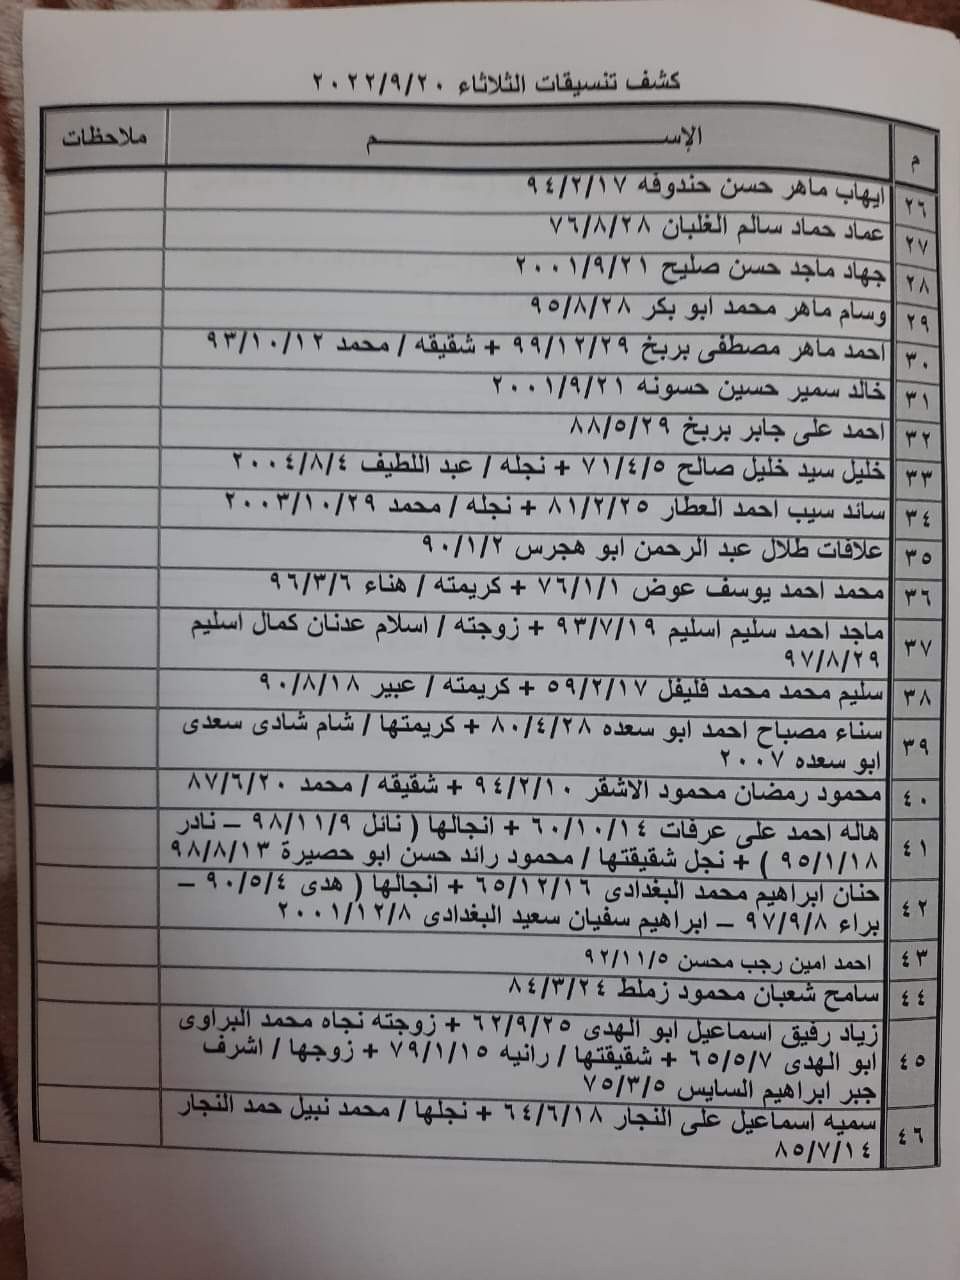 كشف تنسيقات الثلاثاء ٢٠٢٢/٩/٢٠
م الإســـــــــم ملاحظات
٢٦ ايهاب ماهر حسن حندوفه ٩٤/٢/١٧
٢٧ عماد حماد سالم الغلبان ٧٦/٨/٢٨
٢٨ جهاد ماجد حسن صليح ٢٠٠١/٩/٢١
٢٩ وسام ماهر محمد ابو بكر ٩٥/٨/٢٨
٣٠ احمد ماهر مصطفى بربخ ٩٩/١٢/٢٩ + شقيقه / محمد ٩٣/١٠/١٢
٣١ خالد سمير حسين حسونه ٢٠٠١/٩/٢١
٣٢ احمد على جابر بربخ ٨٨/٥/٢٩
٣٣ خليل سيد خليل صالح ٧١/٤/٥ + نجله / عبد اللطيف ٢٠٠٤/٨/٤
٣٤ سائد سيب احمد العطار ٨١/٢/٢٥ + نجله / محمد ٢٠٠٣/١٠/٢٩
٣٥ علافات طلال عبد الرحمن ابو هجرس ٩٠/١/٢
٣٦ محمد احمد يوسف عوض ٧٦/١/١ + كريمته / هناء ٩٦/٣/٦
٣٧ ماجد احمد سليم اسليم ٩٣/٧/١٩ + زوجته / اسلام عدنان كمال اسليم
٩٧/٨/٢٩
٣٨ سليم محمد محمد فليفل ٥٩/٢/١٧ + كريمته / عبير ٩٠/٨/١٨
٣٩ سناء مصباح احمد ابو سعده ٨٠/٤/٢٨ + كريمتها / شام شادى سعدى
ابو سعده ٢٠٠٧
٤٠ محمود رمضان محمود الاشقر ٩٤/٢/١٠ + شقيقه / محمد ٨٧/٦/٢٠
٤١ هاله احمد على عرفات ٦٠/١٠/١٤ + انجالها ( نائل ٩٨/١١/٩ – نادر
٩٥/١/١٨ ) + نجل شقيقتها / محمود رائد حسن ابو حصيرة ٩٨/٨/١٣
٤٢ حنان ابراهيم محمد البغدادى ٦٥/١٢/١٦ + انجالها ( هدى ٩٠/٥/٤ –
براء ٩٧/٩/٨ – ابراهيم سفيان سعيد البغدادى ٢٠٠١/١٢/٨
٤٣ احمد امين رجب محسن ٩٢/١١/٥
٤٤ سامح شعبان محمود زملط ٨٤/٣/٢٤
٤٥ زياد رفيق اسماعيل ابو الهدى ٦٢/٩/٢٥ + زوجته نجاه محمد البراوى
ابو الهدى ٦٥/٥/٧ + شقيقتها / رانيه ٧٩/١/١٥ + زوجها / اشرف
جبر ابراهيم السايس ٧٥/٣/٥
٤٦ سميه اسماعيل على النجار ٦٤/٦/١٨ + نجلها / محمد نبيل حمد النجار
٨٥/٧/١٤